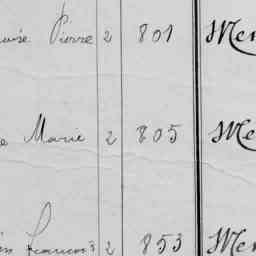 Pierre 2 801 Mer
e Marie 2 805 Me
François 2 853 Mer